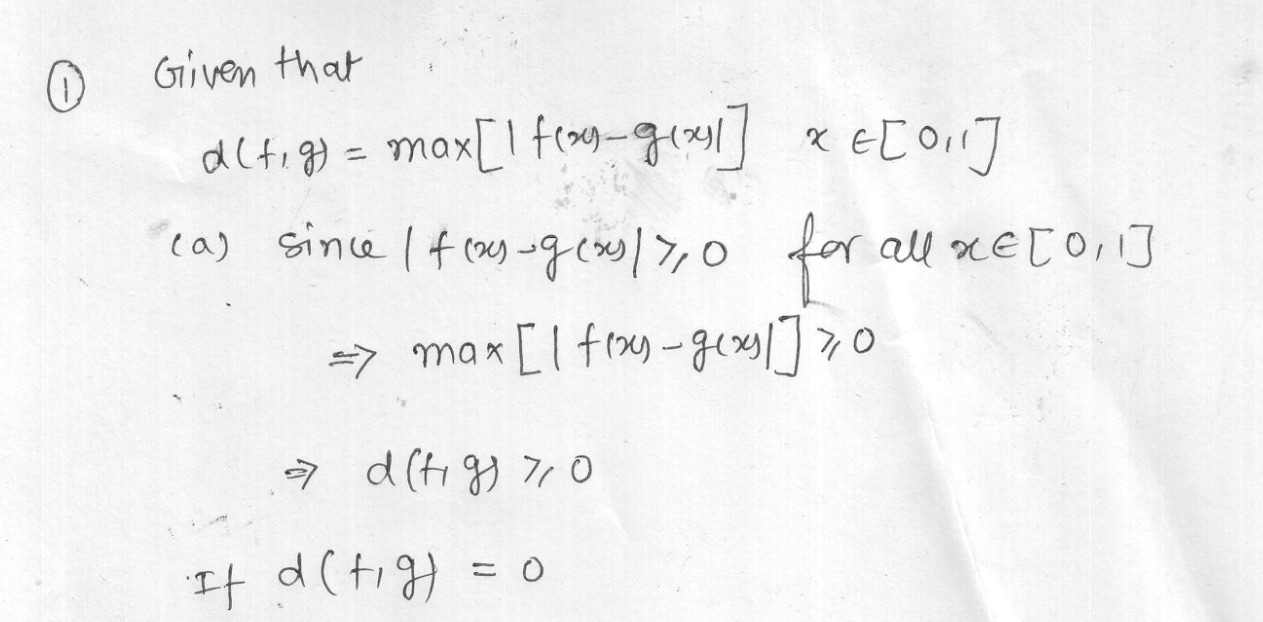 ① Given that
d(f,g) = max[|f(x)-g(x)|] x ∈ [0,1]
(a) since |f(x)-g(x)| ⩾ 0 for all x ∈ [0,1]
⇒ max[|f(x)-g(x)|] ⩾ 0
⇒ d(f,g) ⩾ 0
If d(f,g) = 0